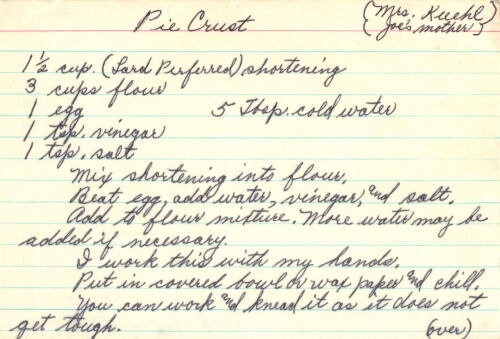 Pie Crust
(Mrs. Kuehl)
(Joe's mother)
1 ½ cup. (Lard Perferred) shortening
3 cups flour
1 egg 5 Tbsp. cold water
1 tsp. vinegar
1 tsp. salt
Mix shortening into flour.
Beat egg, add water, vinegar, and salt.
Add to flour mixture. More water may be
added if necessary.
I work this with my hands.
Put in covered bowl or wax paper and chill.
You can work and knead it as it does not
get tough.
(over)